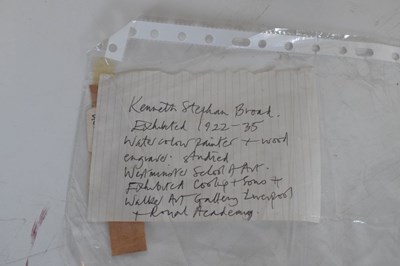 Kenneth Stephan Broad.
Exhibited 1922-35
Watercolour painter + wood
engraver. studied
Westminster School of Art.
Exhibited Cooling + Sons +
Walker Art Gallery Liverpool
+ Royal Academy.